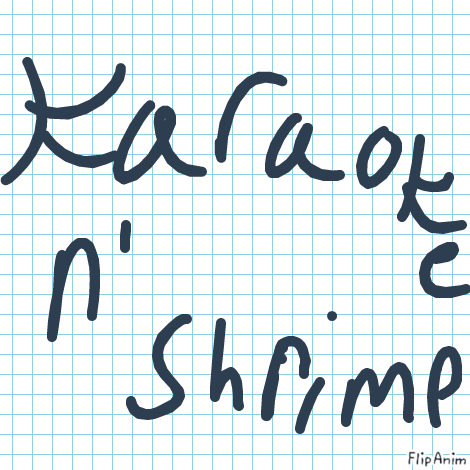 Karaoke
n'
Shrimp
FlipAnim